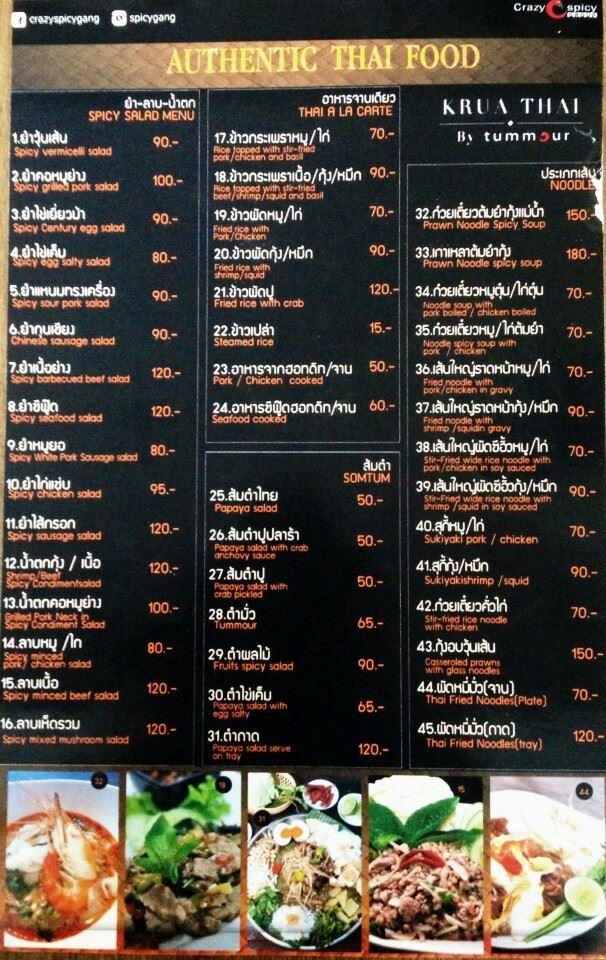 crazyspicygang spicygang
Crazy spicy
AUTHENTIC THAI FOOD
ยำ-ลาบ-น้ำตก
SPICY SALAD MENU
1.ยำวุ้นเส้น 90.-
Spicy vermicelli salad
2.ยำคอหมูย่าง 100.-
Spicy grilled pork salad
3.ยำไข่เยี่ยวม้า 90.-
Spicy Century egg salad
4.ยำไข่เค็ม 80.-
Spicy egg salty salad
5.ยำแหนมทรงเครื่อง 90.-
Spicy sour pork salad
6.ยำกุนเชียง 90.-
Chinese sausage salad
7.ยำเนื้อย่าง 120.-
Spicy barbecued beef salad
8.ยำซีฟู้ด 120.-
Spicy seafood salad
9.ยำหมูยอ 80.-
Spicy White Pork Sausage salad
10.ยำไก่แซ่บ 95.-
Spicy chicken salad
11.ยำไส้กรอก 120.-
Spicy sausage salad
12.น้ำตกกุ้ง / เนื้อ 120.-
Shrimp/Beef
Spicy Condimentsalad
13.น้ำตกคอหมูย่าง 100.-
Grilled Pork Neck in
Spicy Condiment Salad
14.ลาบหมู /ไก่ 80.-
Spicy minced
pork/ chicken salad
15.ลาบเนื้อ 120.-
Spicy minced beef salad
16.ลาบเห็ดรวม 120.-
Spicy mixed mushroom salad
อาหารจานเดียว
THAI A LA CARTE
17.ข้าวกระเพราหมู/ไก่ 70.-
Rice topped with stir-fried
pork/chicken and basil
18.ข้าวกระเพราเนื้อ/กุ้ง/หมึก 90.-
Rice topped with stir-fried
beef/shrimp/squid and basil
19.ข้าวผัดหมู/ไก่ 70.-
Fried rice with
Pork/Chicken
20.ข้าวผัดกุ้ง/หมึก 90.-
Fried rice with
shrimp/squid
21.ข้าวผัดปู 120.-
Fried rice with crab
22.ข้าวเปล่า 15.-
Steamed rice
23.อาหารจากฮอทดิท/จาน 50.-
Pork / Chicken cooked
24.อาหารซีฟู๊ดฮอทดิท/จาน 60.-
Seafood cooked
ส้มตำ
SOMTUM
25.ส้มตำไทย 50.-
Papaya salad
26.ส้มตำปูปลาร้า 50.-
Papaya salad with crab
anchovy sauce
27.ส้มตำปู 50.-
Papaya salad with
crab pickled
28.ตำมั่ว 65.-
Tummour
29.ตำผลไม้ 90.-
Fruits spicy salad
30.ตำไข่เค็ม 65.-
Papaya salad with
egg salty
31.ตำถาด 120.-
Papaya salad serve
on tray
KRUA THAI
By tummour
ประเภทเส้น
NOODLE
32.ก๋วยเตี๋ยวต้มยำกุ้งแม่น้ำ 150.-
Prawn Noodle Spicy Soup
33.เกาเหลาต้มยำกุ้ง 180.-
Prawn Noodle spicy soup
34.ก๋วยเตี๋ยวหมูตุ๋น/ไก่ตุ๋น 70.-
Noodle soup with
pork boiled / chicken boiled
35.ก๋วยเตี๋ยวหมู/ไก่ต้มยำ 70.-
Noodle spicy soup with
pork / chicken
36.เส้นใหญ่ราดหน้าหมู/ไก่ 70.-
Fried noodle with
pork/chicken in gravy
37.เส้นใหญ่ราดหน้ากุ้ง/หมึก 90.-
Fried noodle with
shrimp /squidin gravy
38.เส้นใหญ่ผัดซีอิ้วหมู/ไก่ 70.-
Stir-Fried wide rice noodle with
pork/chicken in soy sauced
39.เส้นใหญ่ผัดซีอิ้วกุ้ง/หมึก 90.-
Stir-Fried wide rice noodle with
shrimp /squid in soy sauced
40.สุกี้หมู/ไก่ 70.-
Sukiyaki pork / chicken
41.สุกี้กุ้ง/หมึก 90.-
Sukiyakishrimp /squid
42.ก๋วยเตี๋ยวคั่วไก่ 70.-
Stir-fried rice noodle
with chicken
43.กุ้งอบวุ้นเส้น 150.-
Casseroled prawns
with glass noodles
44.ผัดหมี่มั่ว(จาน) 70.-
Thai Fried Noodles(Plate)
45.ผัดหมี่มั่ว(ถาด) 120.-
Thai Fried Noodles(tray)
32 18 31 15 44